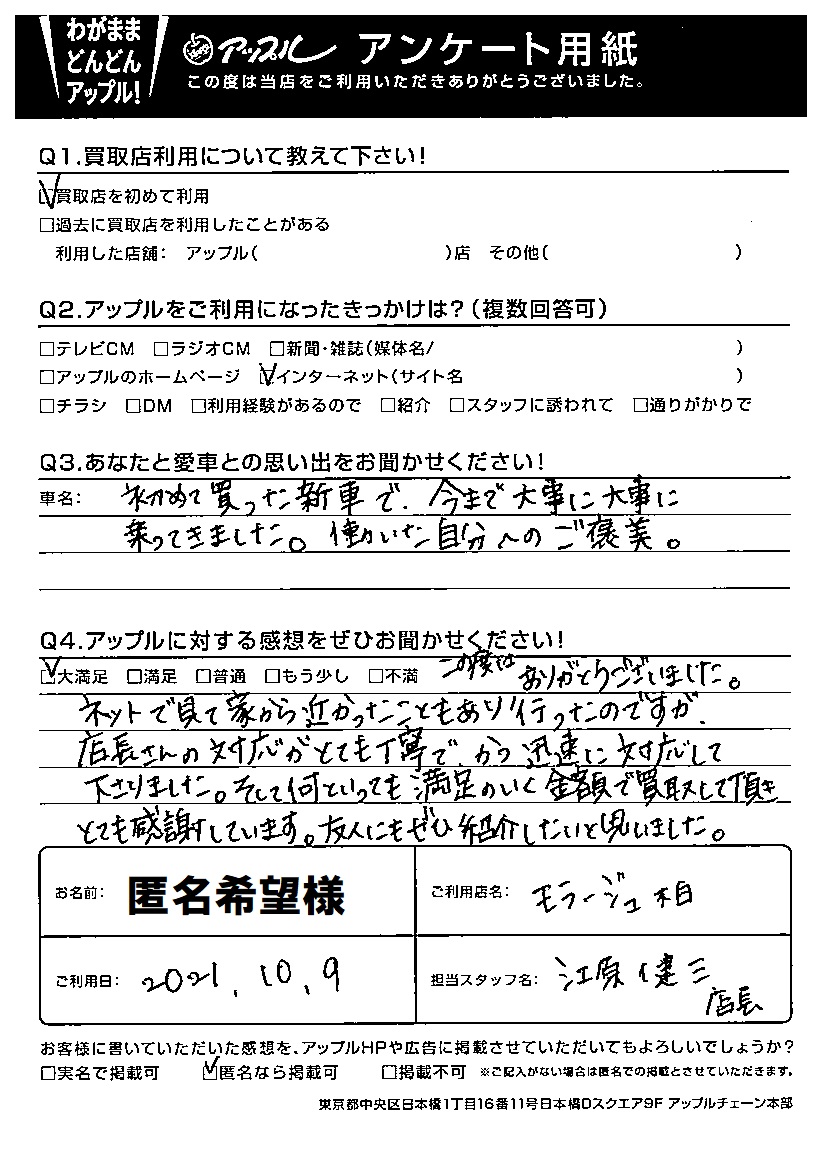 わがまま
どんどん
アップル!
アップル アンケート用紙
この度は当店をご利用いただきありがとうございました。
Q1.買取店利用について教えて下さい!
☑買取店を初めて利用
□過去に買取店を利用したことがある
利用した店舗: アップル( )店 その他( )
Q2.アップルをご利用になったきっかけは?(複数回答可)
□テレビCM □ラジオCM □新聞・雑誌(媒体名/ )
□アップルのホームページ ☑インターネット(サイト名 )
□チラシ □DM □利用経験があるので □紹介 □スタッフに誘われて □通りがかりで
Q3.あなたと愛車との思い出をお聞かせください!
車名: 初めて買った新車で、今まで大事に大事に
乗ってきました。働いた自分へのご褒美。
Q4.アップルに対する感想をぜひお聞かせください!
☑大満足 □満足 □普通 □もう少し □不満 この度は ありがとうございました。
ネットで見て家から近かったこともあり行ったのですが、
店長さんの対応がとても丁寧で、かつ迅速に対応して
下さりました。そして何といっても満足のいく金額で買取して頂き
とても感謝しています。友人にもぜひ紹介したいと思いました。
お名前: 匿名希望様
ご利用店名: モラージュ柏
ご利用日: 2021.10.9
担当スタッフ名: 江原健三
店長
お客様に書いていただいた感想を、アップルHPや広告に掲載させていただいてもよろしいでしょうか?
□実名で掲載可 ☑匿名なら掲載可 □掲載不可 ※ご記入がない場合は匿名での掲載とさせていただきます。
東京都中央区日本橋1丁目16番11号日本橋Dスクエア9F アップルチェーン本部